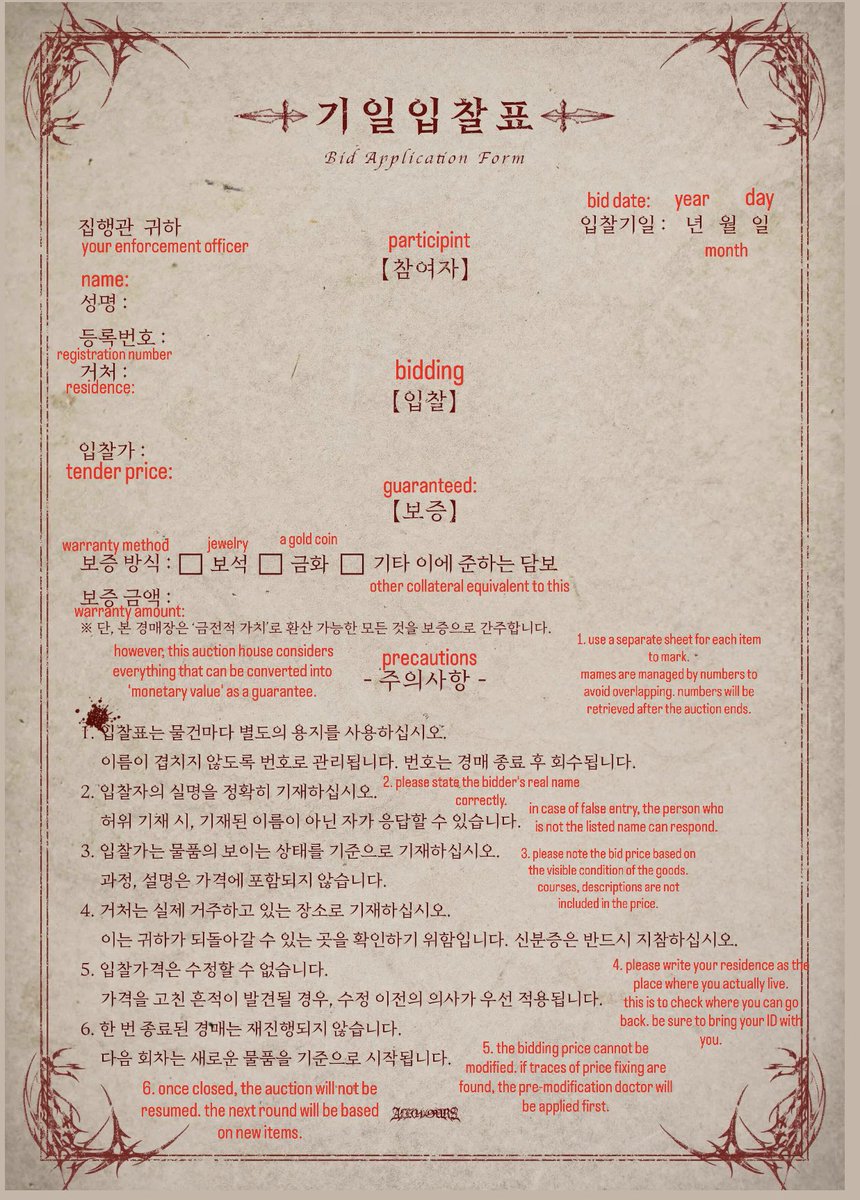 기일입찰표
Bid Application Form
bid date: year day
입찰기일 : 년 월 일
month
집행관 귀하
your enforcement officer
participint
【참여자】
name:
성명 :
등록번호 :
registration number
거처 :
residence:
bidding
【입찰】
입찰가 :
tender price:
guaranteed:
【보증】
warranty method jewelry a gold coin
보증 방식 : □ 보석 □ 금화 □ 기타 이에 준하는 담보
other collateral equivalent to this
보증 금액 :
warranty amount:
※ 단, 본 경매장은 '금전적 가치'로 환산 가능한 모든 것을 보증으로 간주합니다.
however, this auction house considers
everything that can be converted into
'monetary value' as a guarantee.
precautions
- 주의사항 -
1. use a separate sheet for each item
to mark.
mames are managed by numbers to
avoid overlapping. numbers will be
retrieved after the auction ends.
1. 입찰표는 물건마다 별도의 용지를 사용하십시오.
이름이 겹치지 않도록 번호로 관리됩니다. 번호는 경매 종료 후 회수됩니다.
2. 입찰자의 실명을 정확히 기재하십시오.
2. please state the bidder's real name
correctly.
허위 기재 시, 기재된 이름이 아닌 자가 응답할 수 있습니다.
in case of false entry, the person who
is not the listed name can respond.
3. 입찰가는 물품의 보이는 상태를 기준으로 기재하십시오.
과정, 설명은 가격에 포함되지 않습니다.
3. please note the bid price based on
the visible condition of the goods.
courses, descriptions are not
included in the price.
4. 거처는 실제 거주하고 있는 장소로 기재하십시오.
이는 귀하가 되돌아갈 수 있는 곳을 확인하기 위함입니다. 신분증은 반드시 지참하십시오.
4. please write your residence as the
place where you actually live.
this is to check where you can go
back. be sure to bring your ID with
you.
5. 입찰가격은 수정할 수 없습니다.
가격을 고친 흔적이 발견될 경우, 수정 이전의 의사가 우선 적용됩니다.
5. the bidding price cannot be
modified. if traces of price fixing are
found, the pre-modification doctor will
be applied first.
6. 한 번 종료된 경매는 재진행되지 않습니다.
다음 회차는 새로운 물품을 기준으로 시작됩니다.
6. once closed, the auction will not be
resumed. the next round will be based
on new items.